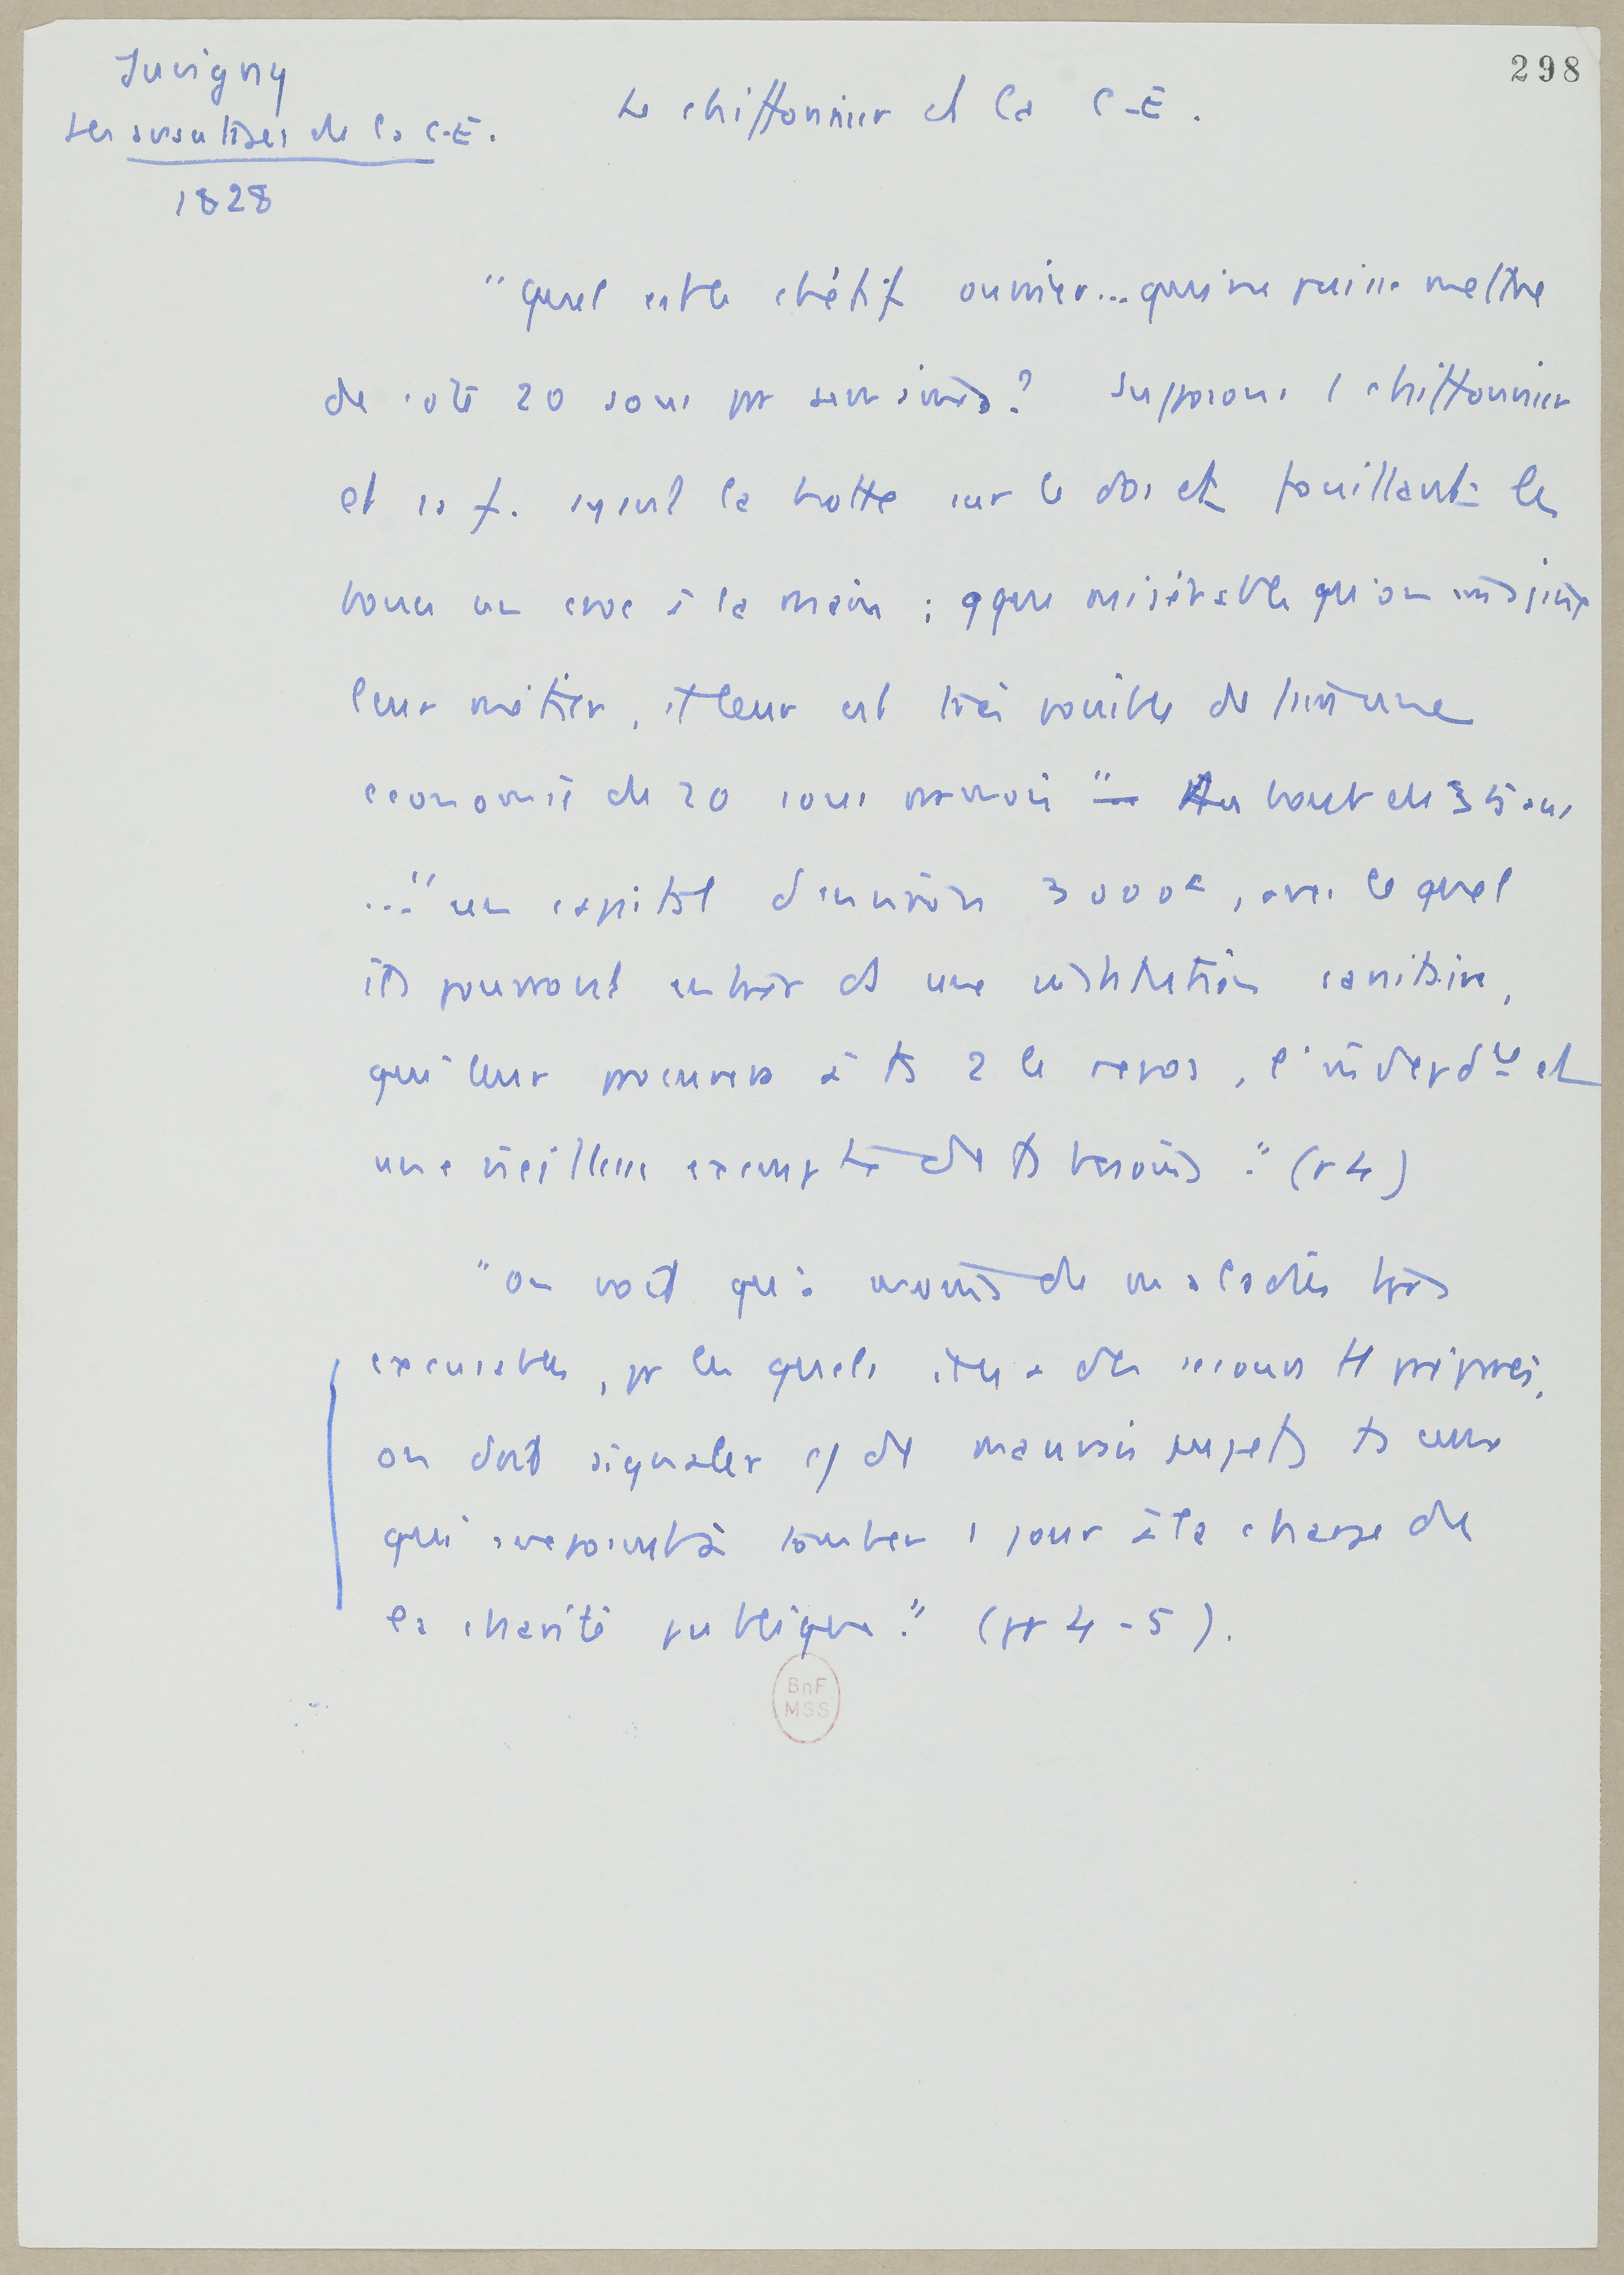 298
Juvigny
Les avantages de la C-E.
1828
Le chiffonnier et la C-E.
"Quel est le chétif ouvrier... qui ne puisse mettre
de côté 20 sous par semaine? Supposons 1 chiffonnier
et sa f. ayant la hotte sur le dos et fouillant les
boues un croc à la main ; qque misérable qu'on imagine
leur métier, il leur est très possible de faire une
économie de 20 sous par mois" — Au bout de 35 ans
..."un capital d'environ 3000f, avec lequel
ils pourront entrer ds une institution sanitaire,
qui leur procurera à ts 2 le repos, l'indépdce et
une vieillesse exempte de ts besoins." (p 4)
"on voit qu'à moins de maladies très
excusables, pr lesquels il y a des secours tt préparés,
on doit signaler c/ de mauvais sujets ts ceux
qui à tomber 1 jour à la charge de
la charité publique." (pp 4-5).
BnF
MSS